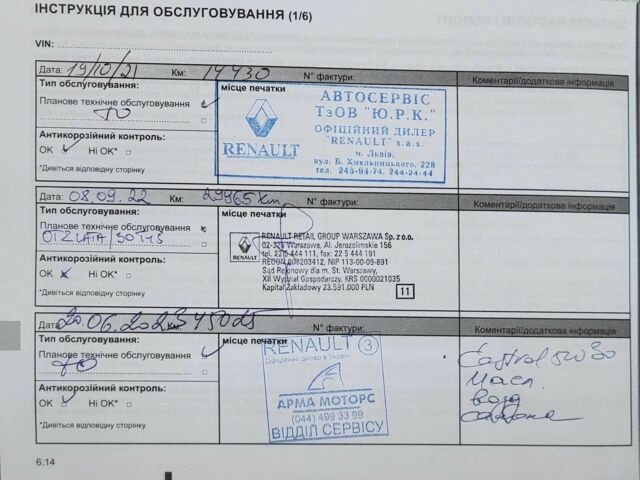 ІНСТРУКЦІЯ ДЛЯ ОБСЛУГОВУВАННЯ (1/6)
VIN:
Дата: 19/10/21 Км: 14430 N° фактури: Коментарії/додаткова інформація
Тип обслуговування: місце печатки
Планове технічне обслуговування
ТО
Антикорозійний контроль:
OK Ні OK*
*Дивіться відповідну сторінку
RENAULT
АВТОСЕРВІС
ТзОВ "Ю.Р.К."
ОФІЦІЙНИЙ ДИЛЕР
"RENAULT" s.a.s.
м. Львів,
вул. Б. Хмельницького, 228
тел. 245-94-74, 244-24-44
Дата: 08.09.22 Км: 29965 km N° фактури: Коментарії/додаткова інформація
Тип обслуговування: місце печатки
Планове технічне обслуговування
Антикорозійний контроль:
OK Ні OK*
*Дивіться відповідну сторінку
RENAULT RETAIL GROUP WARSZAWA Sp. z o.o.
02-326 Warszawa, Al. Jerozolimskie 156
tel. 22 5 444 111, fax: 22 5 444 191
REGON 009203412, NIP 113-00-09-891
Sąd Rejonowy dla m. St. Warszawy,
XII Wydział Gospodarczy, KRS 0000021035
Kapitał Zakładowy 23.591.000 PLN
11
Дата: 20.06.2023 Км: 45025 N° фактури: Коментарії/додаткова інформація
Тип обслуговування: місце печатки
Планове технічне обслуговування
ТО
Антикорозійний контроль:
OK Ні OK*
*Дивіться відповідну сторінку
RENAULT 3
Офіційний дилер в Україні
АРМА МОТОРС
(044) 499 33 99
ВІДДІЛ СЕРВІСУ
Castrol 5W30
масл.
возд
салона
6.14